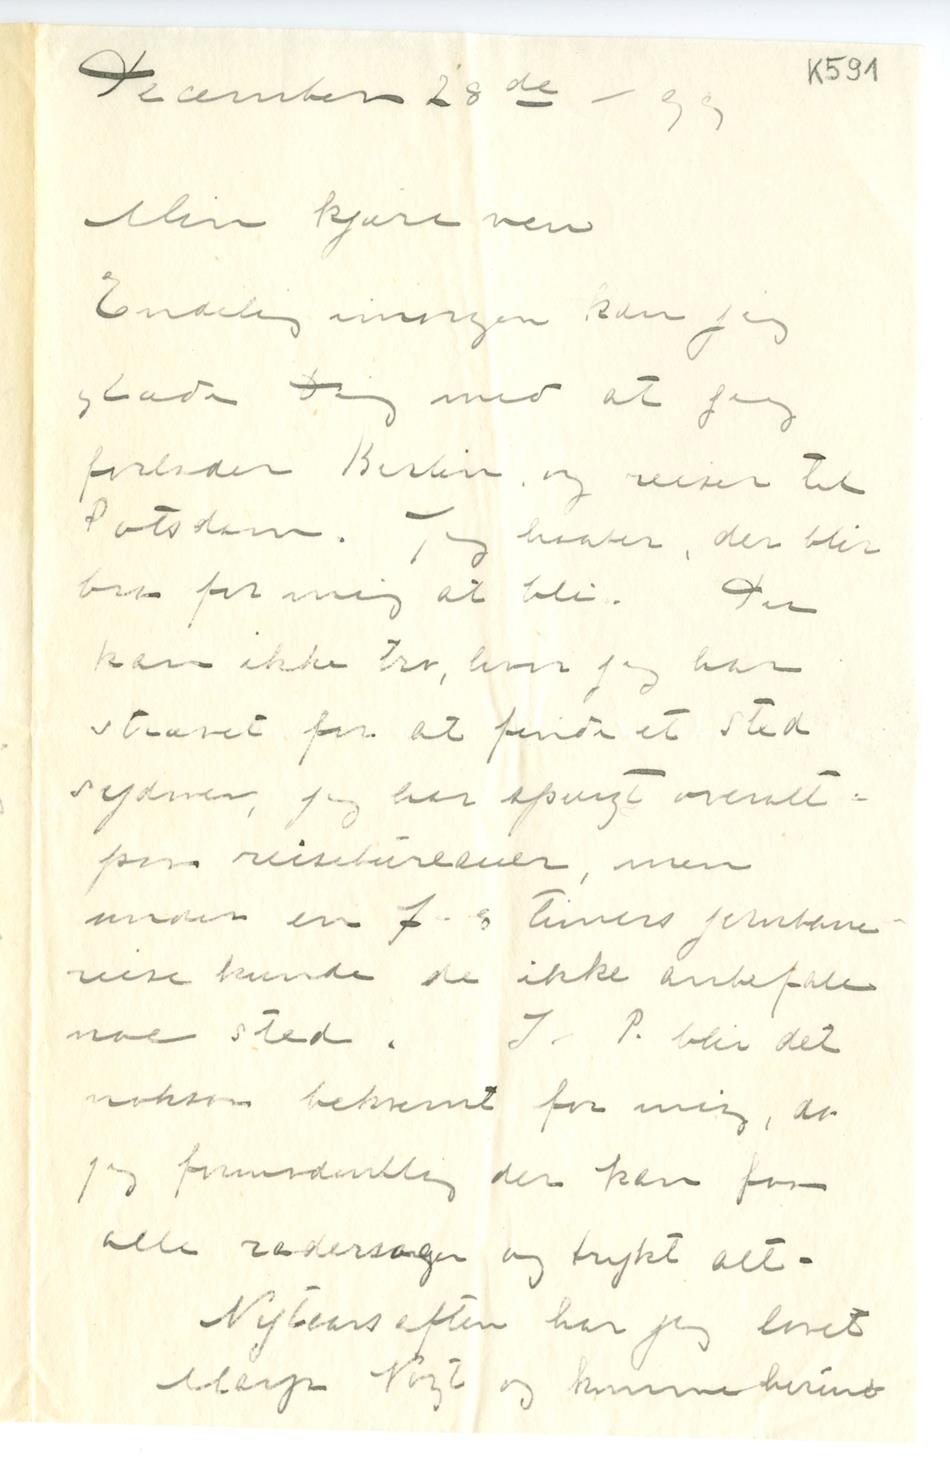 K591
December 28de – 99
Min kjære ven
Endelig imorgen kan jeg
glæde Dig med at jeg
forlader Berlin og reiser til
Potsdam. Jeg haaber, der blir
bra for mig at bli. Du
kan ikke tro, hvor jeg har
strævet for at finde et sted
sydover, jeg har spurgt overalt –
paa reisebureauer, men
under en 7–8 timers jernbane-
reise kunde de ikke anbefale
noe sted. I P. blir det
noksaa bekvemt for mig, da
jeg formodentlig der kan faa
alle radersager og trykt alt –
Nytaarsaften har jeg lovet
Marge Vogt og komme herind